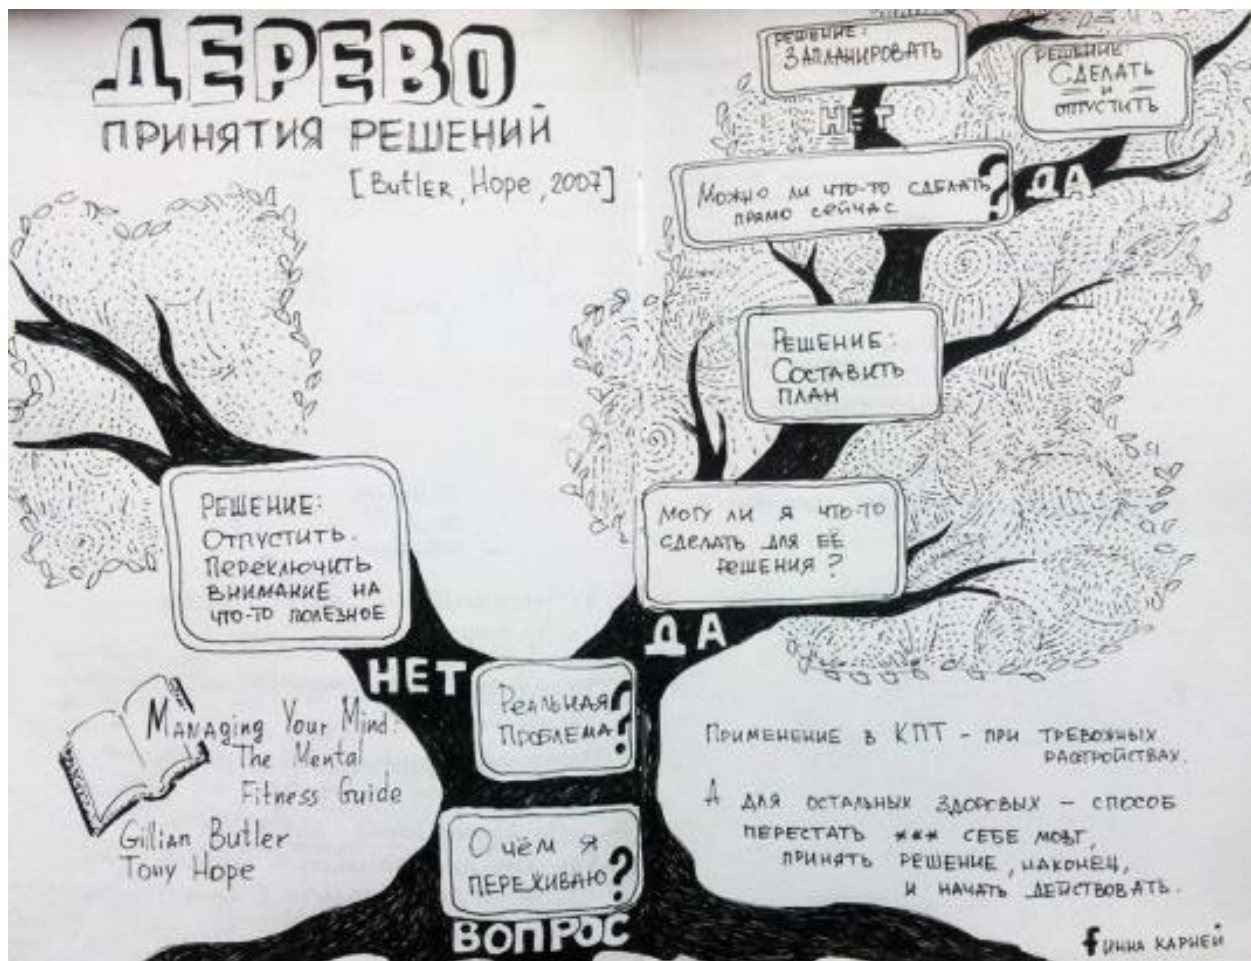 ДЕРЕВО
ПРИНЯТИЯ РЕШЕНИЙ
[Butler, Hope, 2007]
РЕШЕНИЕ:
ЗАПЛАНИРОВАТЬ
РЕШЕНИЕ:
СДЕЛАТЬ
И
ОТПУСТИТЬ
НЕТ
ДА
МОЖНО ЛИ ЧТО-ТО СДЕЛАТЬ
ПРЯМО СЕЙЧАС?
РЕШЕНИЕ:
СОСТАВИТЬ
ПЛАН
МОГУ ЛИ Я ЧТО-ТО
СДЕЛАТЬ ДЛЯ ЕЁ
РЕШЕНИЯ?
ДА
РЕШЕНИЕ:
ОТПУСТИТЬ.
ПЕРЕКЛЮЧИТЬ
ВНИМАНИЕ НА
ЧТО-ТО ПОЛЕЗНОЕ
НЕТ
РЕАЛЬНАЯ
ПРОБЛЕМА?
О ЧЁМ Я
ПЕРЕЖИВАЮ?
ВОПРОС
Managing Your Mind:
The Mental
Fitness Guide
Gillian Butler
Tony Hope
ПРИМЕНЕНИЕ В КПТ - ПРИ ТРЕВОЖНЫХ
РАСТРОЙСТВАХ.
А ДЛЯ ОСТАЛЬНЫХ ЗДОРОВЫХ - СПОСОБ
ПЕРЕСТАТЬ *** СЕБЕ МОЗГ,
ПРИНЯТЬ РЕШЕНИЕ, НАКОНЕЦ,
И НАЧАТЬ ДЕЙСТВОВАТЬ.
f ИННА КАРНЕЙ